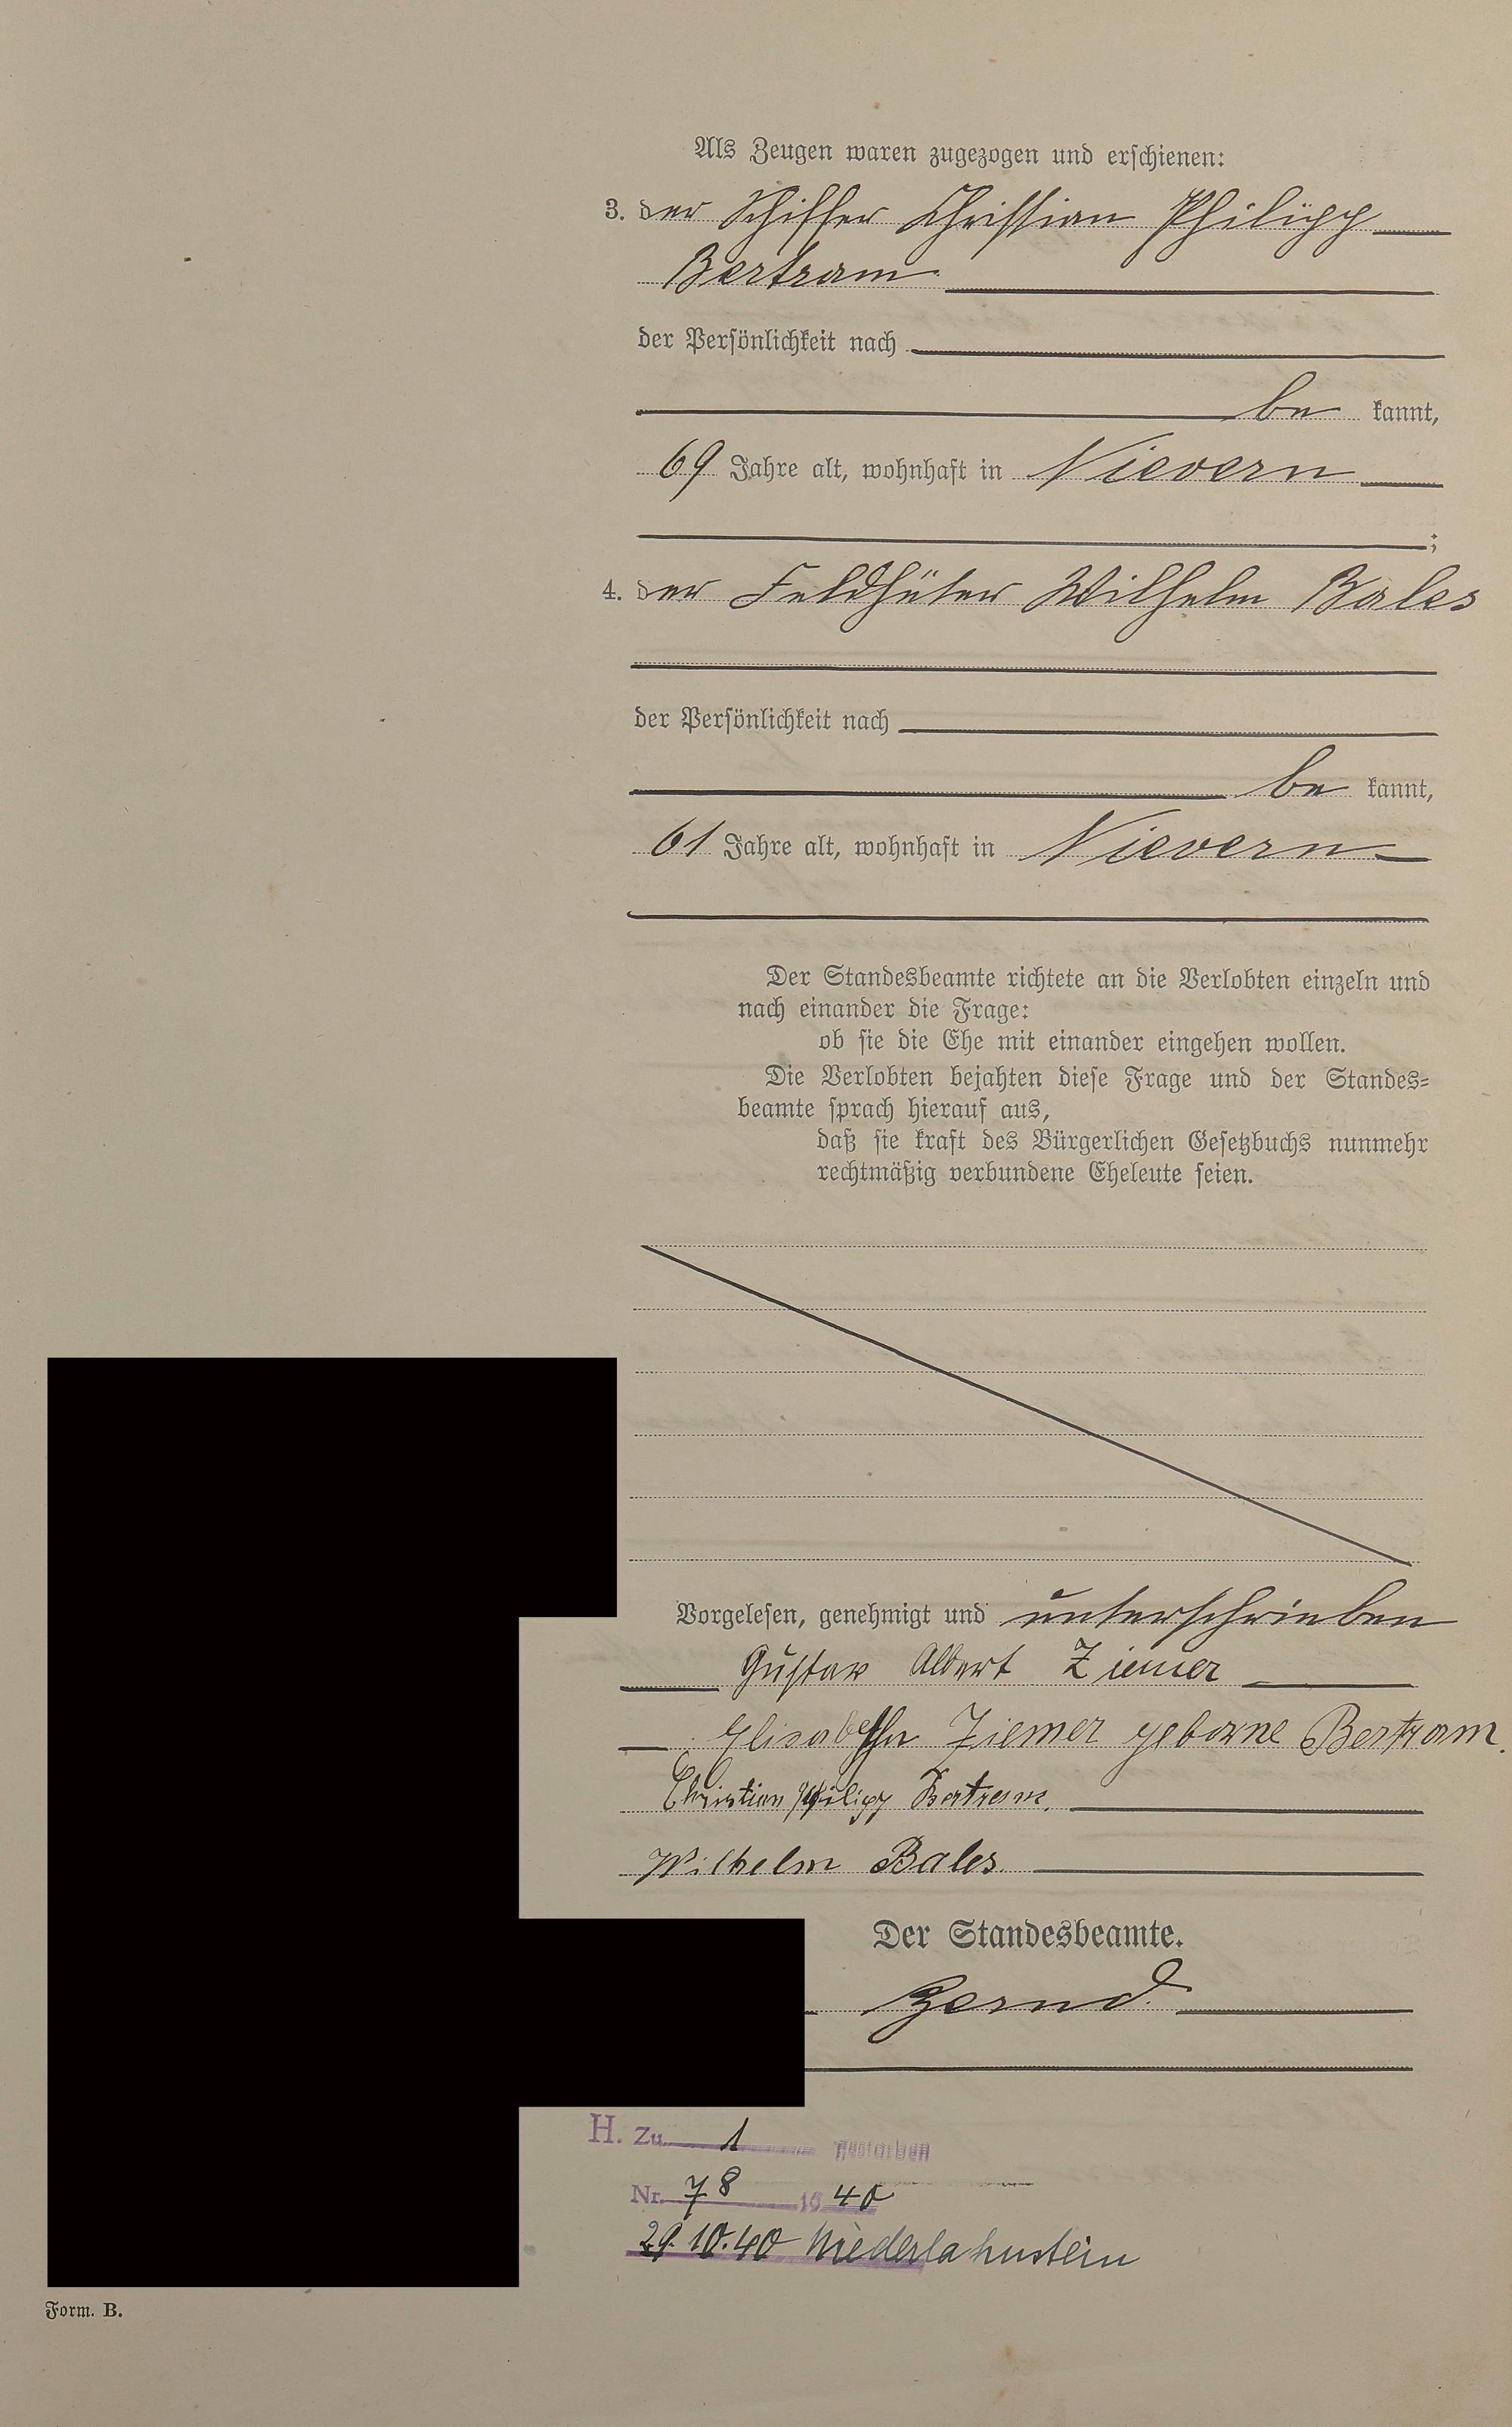 Als Zeugen waren zugezogen und erschienen:
3. der Schiffer Christian Philipp
Bertram
der Persönlichkeit nach
be kannt,
69 Jahre alt, wohnhaft in Nievern
;
4. der Feldhüter Wilhelm Bales
der Persönlichkeit nach
be kannt,
61 Jahre alt, wohnhaft in Nievern
Der Standesbeamte richtete an die Verlobten einzeln und
nach einander die Frage:
ob sie die Ehe mit einander eingehen wollen.
Die Verlobten bejahten diese Frage und der Standes-
beamte sprach hierauf aus,
daß sie kraft des Bürgerlichen Gesetzbuchs nunmehr
rechtmäßig verbundene Eheleute seien.
Vorgelesen, genehmigt und unterschrieben
Gustav Albert Ziemer
Elisabetha Ziemer geborne Bertram.
Christian Philipp Bertram.
Wilhelm Bales.
Der Standesbeamte.
H. Zu 1 gestorben
Nr. 78 1940
29.10.40 Niederlahnstein
Form. B.